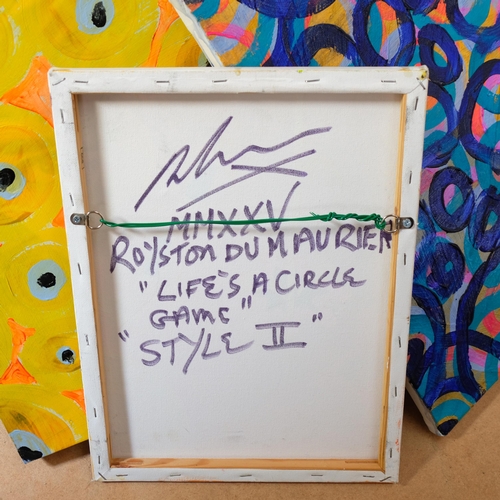 MMXXV
ROYSTON DU MAURIER
"LIFE'S A CIRCLE
GAME"
"STYLE II"